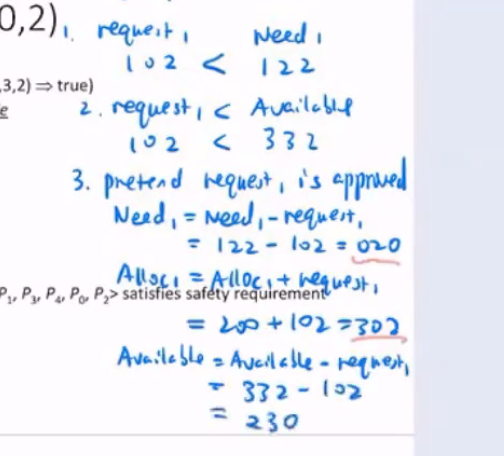 0,2)
1. request₁ Need₁
102 < 122
3,2) ⇒ true)
e
2. request₁ < Available
102 < 332
3. pretend request₁ is approved
Need₁ = Need₁ - request₁
= 122 - 102 = 020
Alloc₁ = Alloc₁ + request₁
P₁, P₃, P₄, P₀, P₂> satisfies safety requirement
= 200 + 102 = 302
Available = Available - request₁
= 332 - 102
= 230